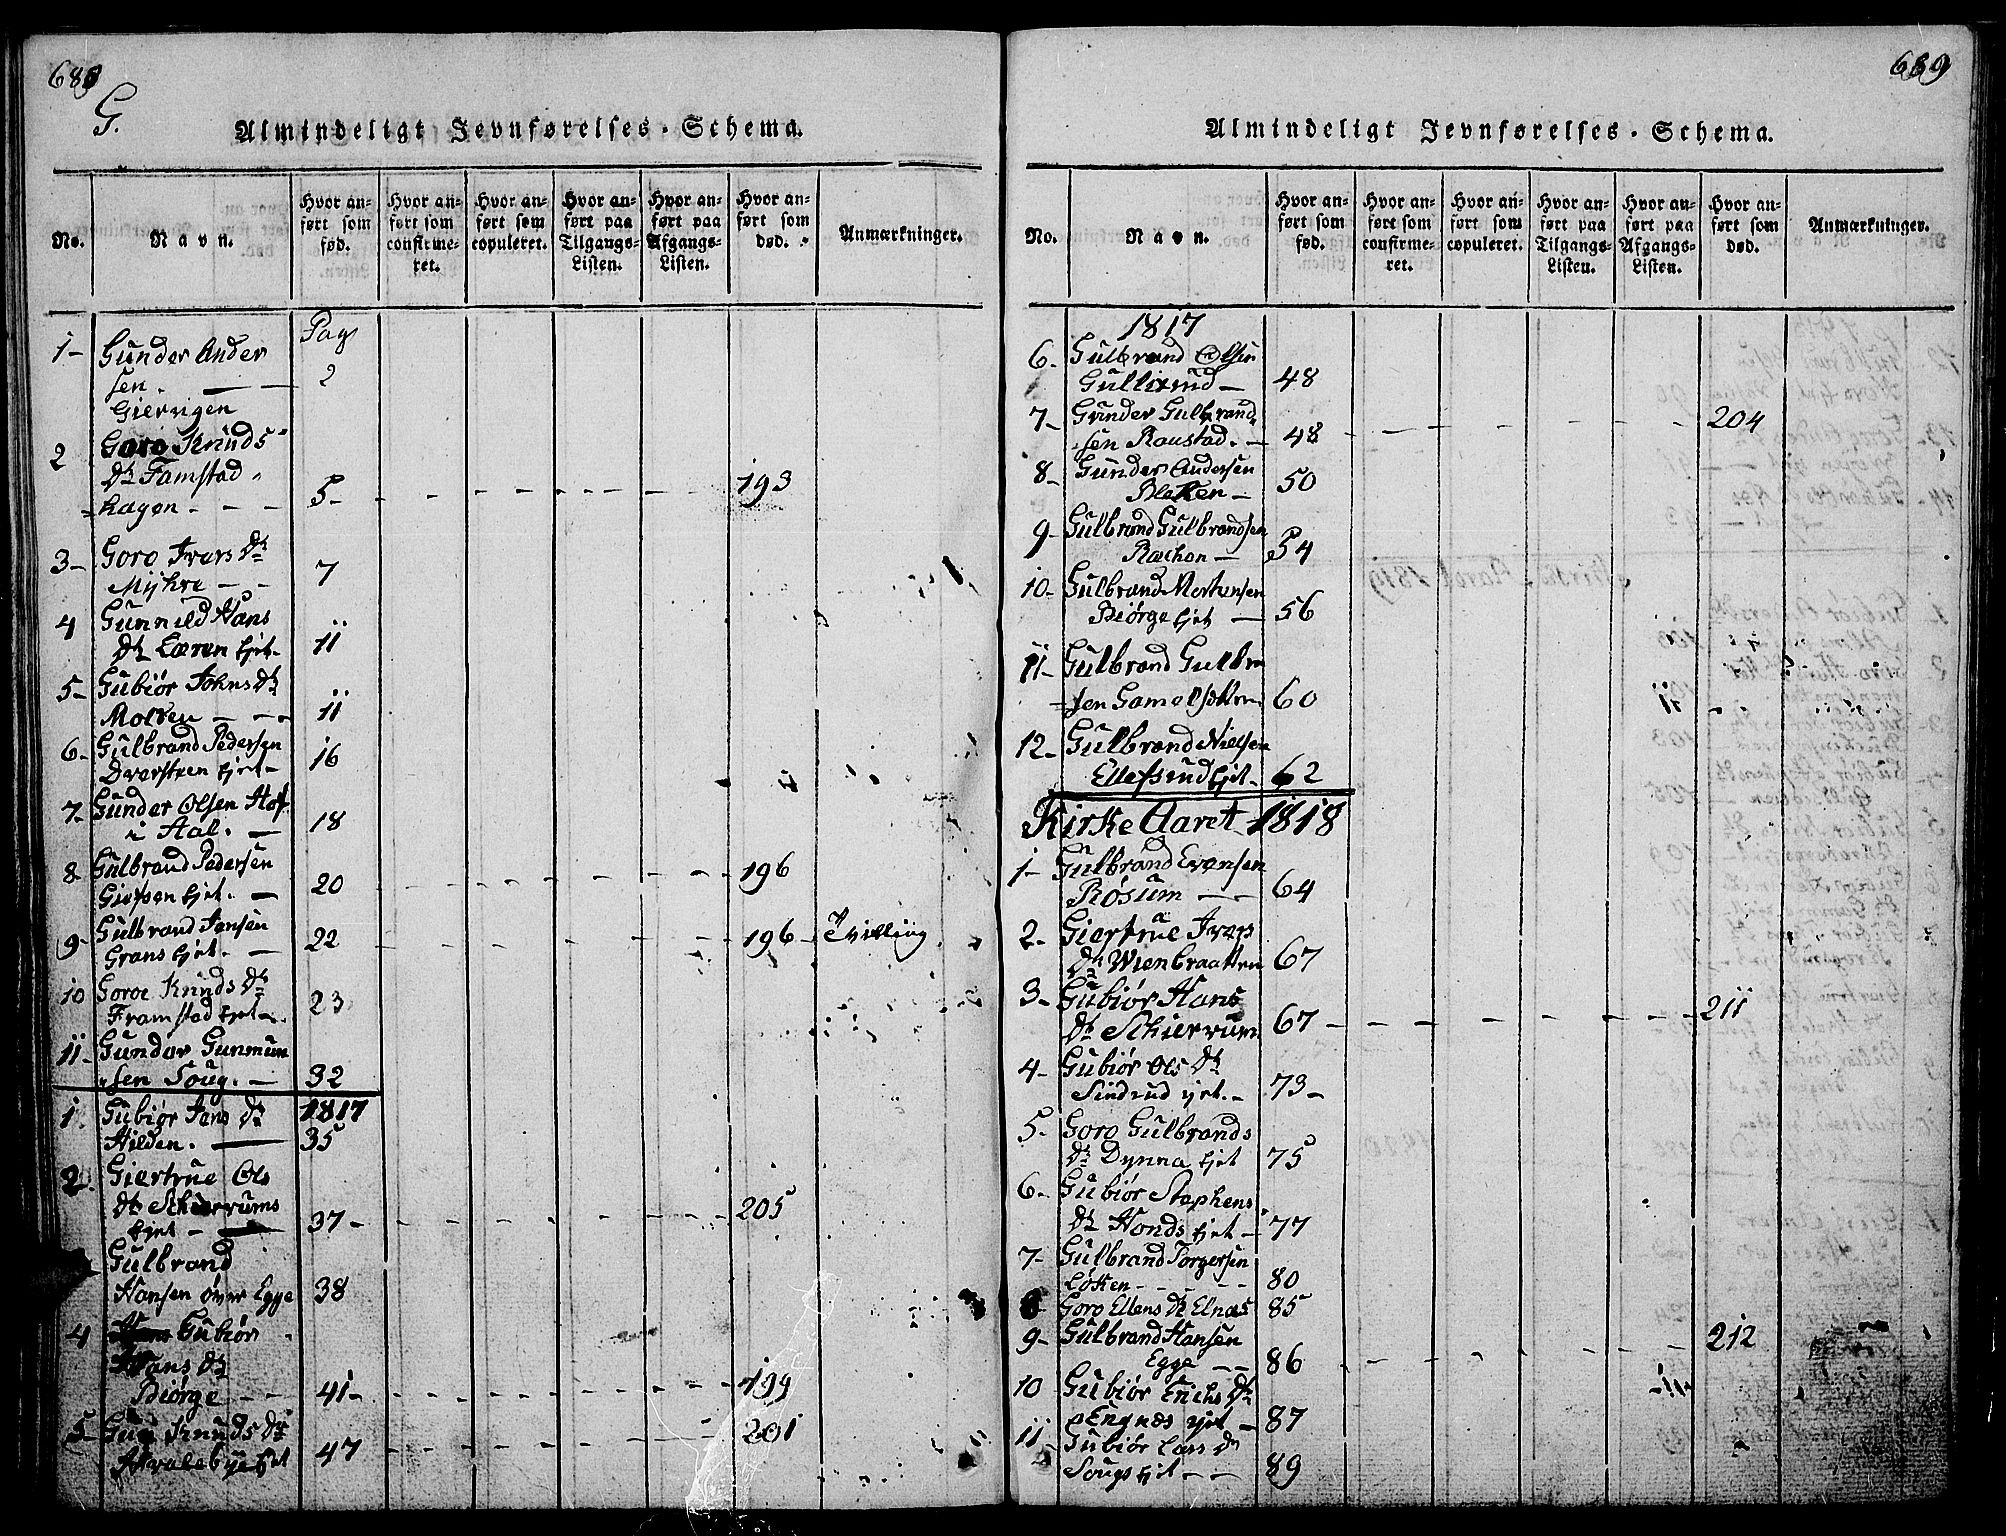 688
G.
Almindeligt Jevnførelses-Schema.
No.
Navn.
Hvor an-
ført som
fød.
Hvor an-
ført som
confirme-
ret.
Hvor an-
ført som
copuleret.
Hvor an-
ført paa
Tilgangs-
Listen.
Hvor an-
ført paa
Afgangs-
Listen.
Hvor an-
ført som
død.
Anmærkninger.
Pag
1- Gunder Ander
sen. 2
Gierrigen
2 Goro Knuds
Dtr
hagen - - - 5- 193
3- Goro Ivars Dtr
Myhre - - 7
4 Gunnild Hans
Dtr Læren Ejet- 11
5- Gubiør Johns Dtr
Molken - - - 11
6- Gulbrand Pedersen
Dversteen Ejet- 16
7- Gunder Olsen Hof
i Aal. - 18
8- Gulbrand Pedersen
Ejet. - 20 196
9- Gulbrand Jansen
Grans Ejet. - 22 196- Tvilling
10 Goroe Knuds Dtr
Framstad Ejet- 23
11- Gundar Gunmun
sen Soug. - 32
1. Gubiør Jans Dtr 1817
Hilden. 35
2. Giertrue Ols
Dtr Schierrums
Ejet - 37- 205
Gulbrand
Hansen øvre Egge 38
4 Gubiør
Hans Dtr
Biørge - - 41- 199
5- Knuds Dtr
Ejet 47 201
689
Almindeligt Jevnførelses-Schema.
No.
Navn.
Hvor an-
ført som
fød.
Hvor an-
ført som
confirme-
ret.
Hvor an-
ført som
copuleret.
Hvor an-
ført paa
Tilgangs-
Listen.
Hvor an-
ført paa
Afgangs-
Listen.
Hvor an-
ført som
død.
Anmærkninger.
1817
6- Gulbrand Olsen
Gullixrud - 48
7- Gunder Gulbrand
sen Raustad. - 48 204
8- Gunder Andersen
Bleken - 50
9- Gulbrand Gulbrandsen
Rækon - 54
10- Gulbrand Mortensen
Biørge Ejet - 56
11- Gulbrand Gulbra
sen 60
12- Gulbrand Nielsen
Ellefsrud Ejet- 62
Kirke Aaret 1818
1- Gulbrand Evensen
Røsum - - 64
2- Giertrue Ivars
Dtr Wienbraatten 67
3- Gubiør Hans
Dtr Schierrum 67 211
4- Gubiør Ols Dtr
Sindrud Ejet.- 73-
5- Goro Gulbrands
Dtr Dynna Ejet 75
6- Gubiør Stephens
Dtr Honds Ejet - 77
7- Gulbrand Torgersen
Løkken - - - 80
8- Goro Ellens Dtr Elnæs 85
9- Gulbrand Hansen
Egge - - 86 212
10 Gubiør Erichs Dtr
Engnæs Ejet - 87
11- Gubiør Lars Dtr
Sougs Ejet - - 89